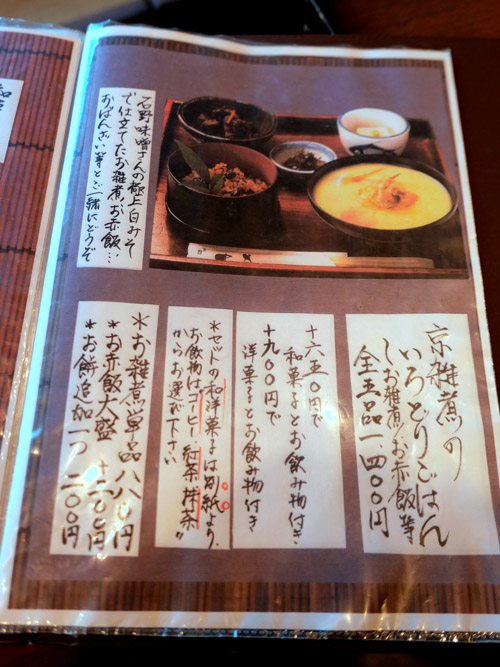 石野味噌さんの極上白みそ
で仕立てたお雑煮、お赤飯…
おばんざい等とご一緒にどうぞ
京雑煮の
いろどりごはん
しお雑煮、お赤飯等
全五品一、四〇〇円
＋六五〇円で
和菓子とお飲み物付き
＋九〇〇円で
洋菓子とお飲み物付き
＊セットの和洋菓子は別紙より、
お飲物はコーヒー、紅茶、抹茶〟
からお選び下さい
＊お雑煮単品 八八〇円
＊お赤飯大盛 ＋二〇〇円
＊お餅追加一つ 二〇〇円